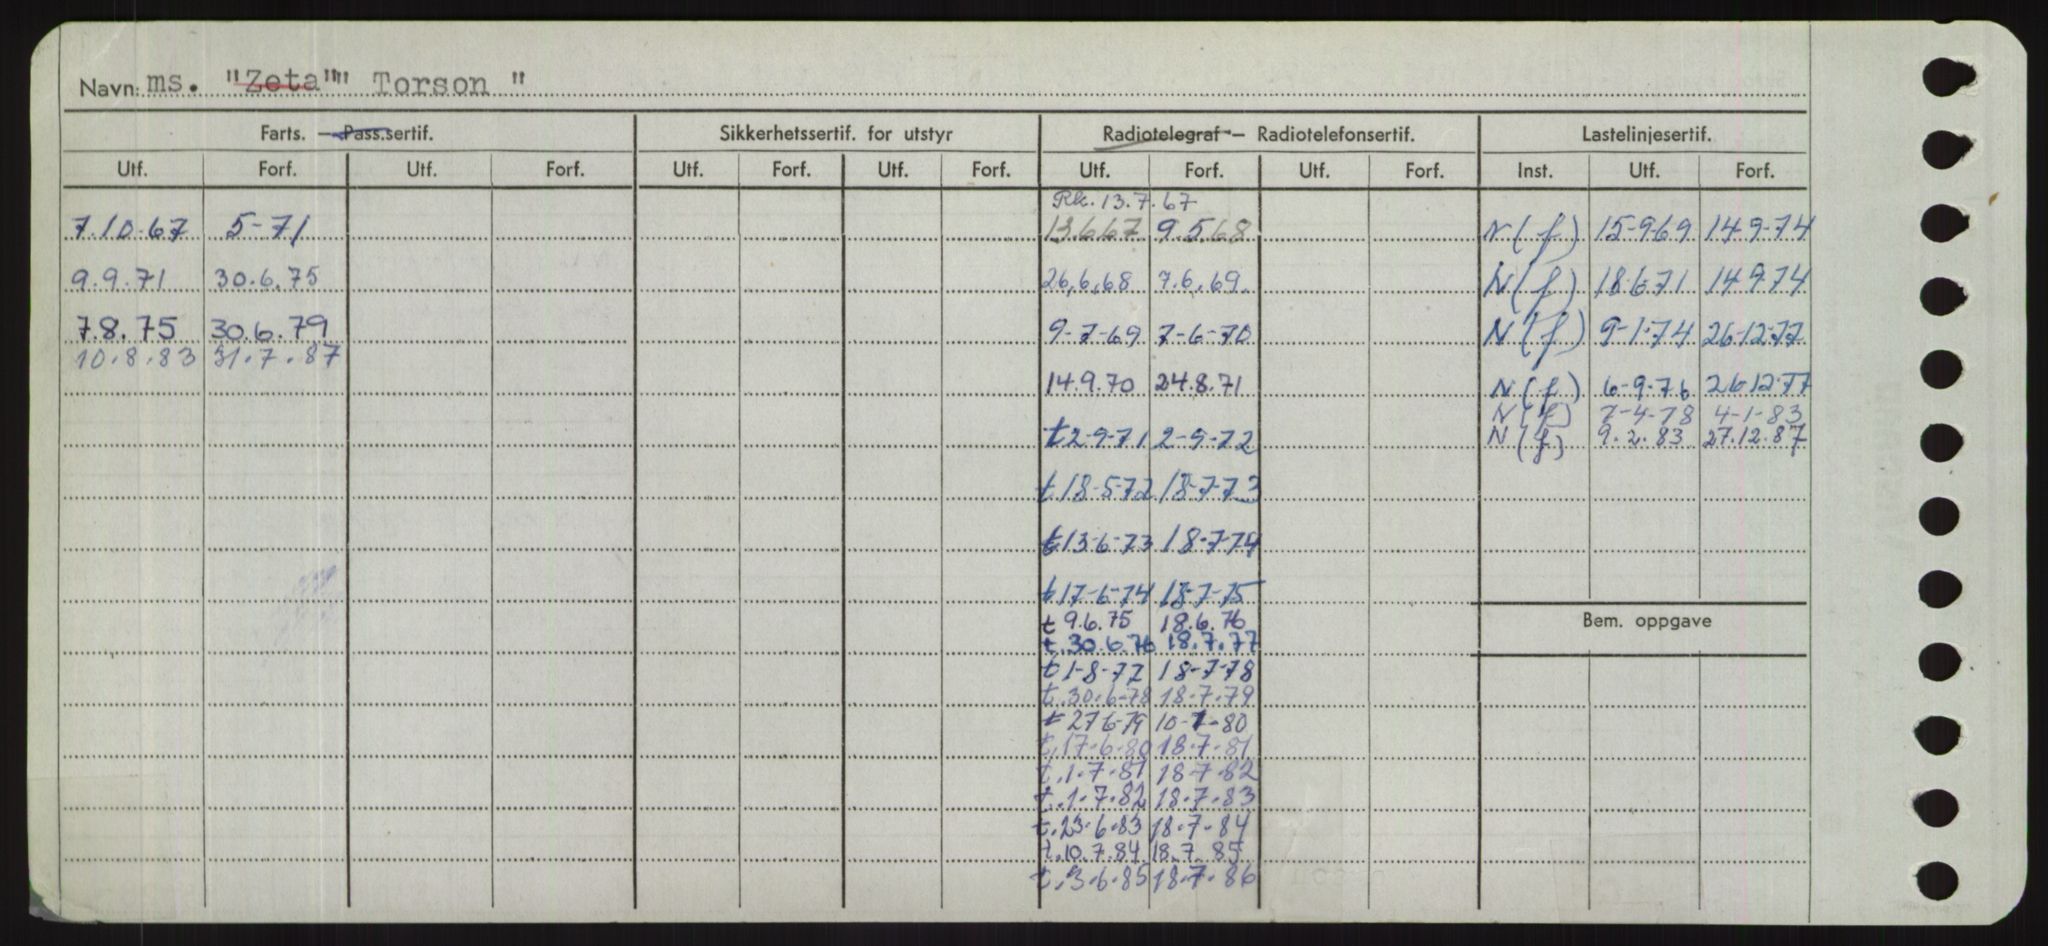 Navn: ms. "Zeta"" Torson "
Farts. – Pass.sertif. Sikkerhetssertif. for utstyr Radiotelegraf – Radiotelefonsertif. Lastelinjesertif.
Utf. Forf. Utf. Forf. Utf. Forf. Utf. Forf. Utf. Forf. Utf. Forf. Inst. Utf. Forf.
Rk. 13.7.67
7.10.67 5-71 13.6.67 9.5.68 N(f) 15-9-69 14-9-74
9.9.71 30.6.75 26.6.68 7.6.69. N(f) 18-6-71 14-9-74
7.8.75 30.6.79 9-7-69 7-6-70 N(f) 9-1-74 26-12-77
10.8.83 31.7.87
14.9.70 24.8.71 N(f) 6-9-76 26-12-77
N(f) 7-4-78 4-1-83
t 2-9-71 2-9-72 N(f) 9.2.83 27.12.87
t 18-5-72 18-7-73
t 13-6-73 18-7-74
t 17-6-74 18-7-75
t 9.6.75 18.6.76 Bem. oppgave
t. 30.6.76 18.7.77
t 1-8-77 18-7-78
t. 30.6-78 18.7.79
t 27 6-79 10-7-80
t. 17-6-80 18.7.81
t. 1.7.81 18 7.82
t. 1.7.82 18.7.83
t. 23.6.83 18.7.84
t. 10.7.84 18.7.85
t. 3.6.85 18.7.86